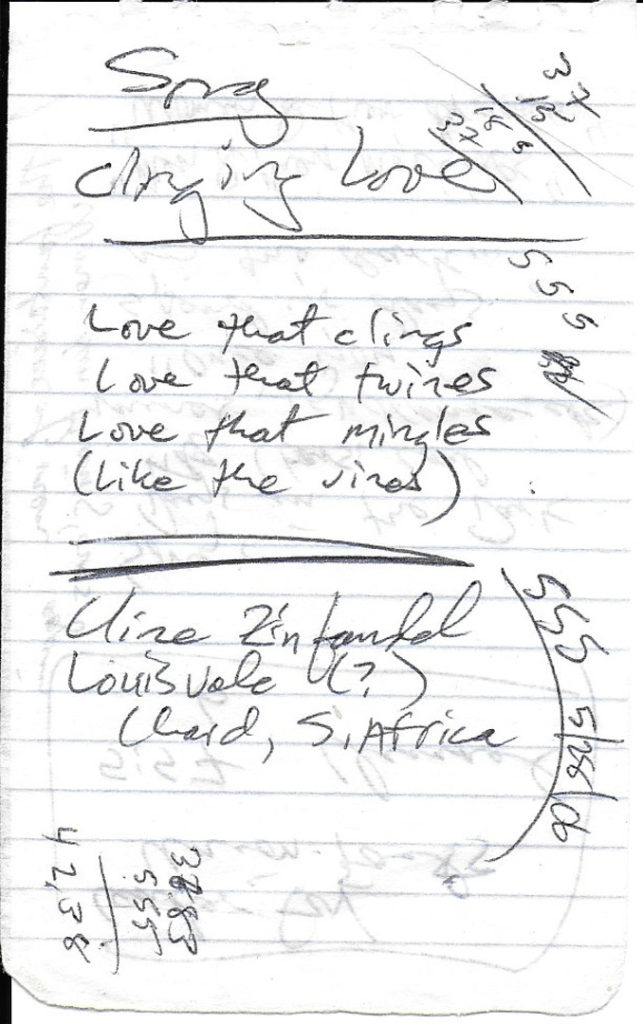 Song
Clinging Love
Love that clings
Love that twines
Love that mingles
(Like the vines)
Cline Zinfandel
Louisvale (?)
Chard, S. Africa
555
555
5/26/06
37.83
5.55
42,38